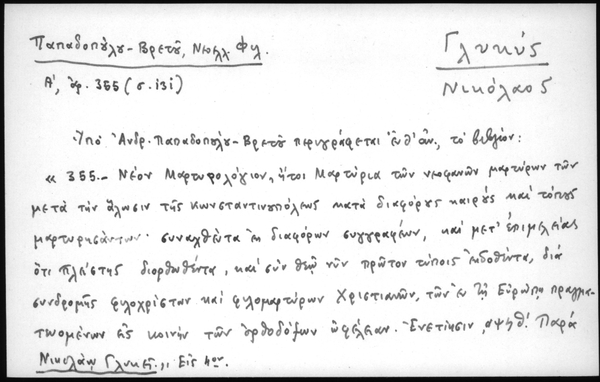 Παπαδοπύλυ-Βρετȣ͂, Νεοελλ. Φιλ.
Α', ἀρ. 355 (σ. 131)
Γλυκύς
Νικόλαος
Ὑπὸ Ἀνδρ. Παπαδοπύλυ-Βρετȣ͂ περιγράφεται ἐνθ' ἀν., τὸ βιβλίον:
« 355.- Νέον Μαρτυρολόγιον, ἤτοι Μαρτύρια τῶν νεοφανῶν μαρτύρων τῶν
μετὰ τὴν ἅλωσιν τῆς Κωνσταντινυπόλεως κατὰ διαφόρȣς καιρȣ̀ς καὶ τόπȣς
μαρτυρησάντων· συναχθέντα ἐκ διαφόρων συγγραφέων, καὶ μετ' ἐπιμελείας
ὅτι πλείστης διορθωθέντα, καὶ σὺν θεῷ νῦν πρῶτον τύποις ἐκδοθέντα, διὰ
συνδρομῆς φιλοχρίστων καὶ φιλομαρτύρων Χριστιανῶν, τῶν ἐν τῇ Εὐρώπῃ πραγμα-
τευομένων εἰς κοινὴν τῶν ὀρθοδόξων ὠφέλειαν. Ἐνετίησιν, αψϟθ'. Παρὰ
Νικολάῳ Γλυκεῖ.,, Εἰς 4ον.